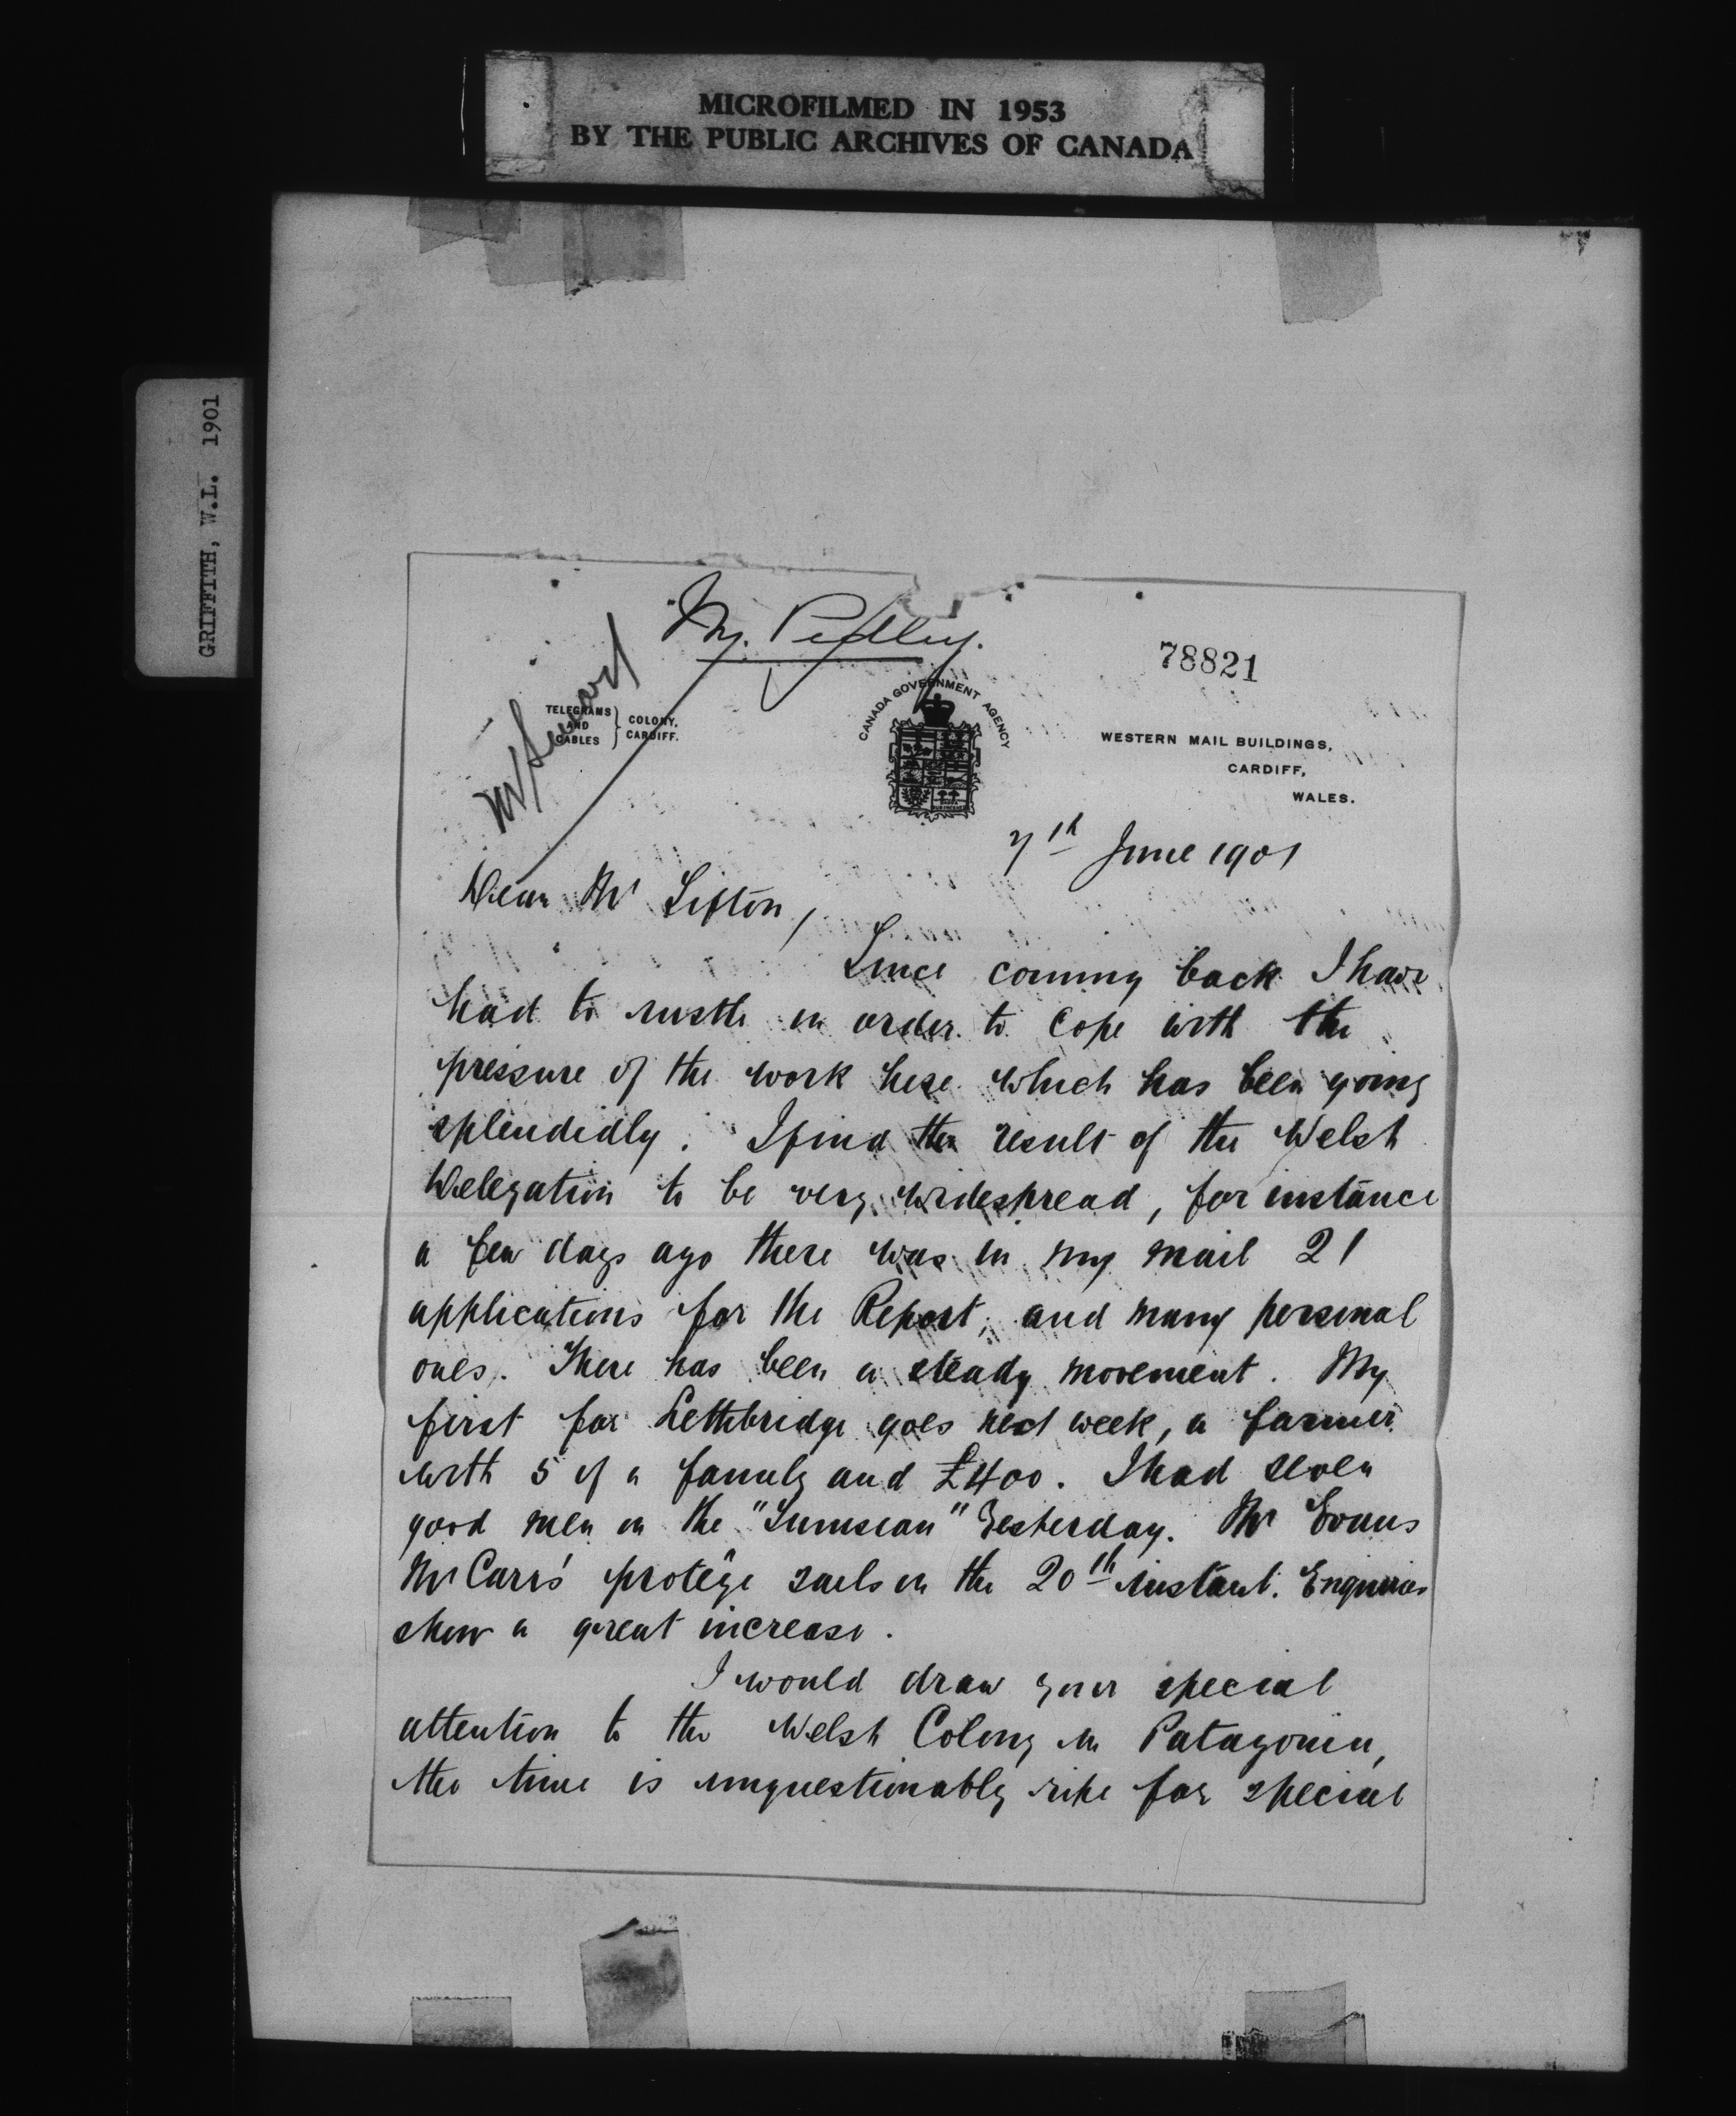 MICROFILMED IN 1953
BY THE PUBLIC ARCHIVES OF CANADA
GRIFFITH, W.L. 1901
Mr. Pedley.
Mr Smart
78821
TELEGRAMS AND CABLES } COLONY, CARDIFF.
CANADA GOVERNMENT AGENCY
WESTERN MAIL BUILDINGS,
CARDIFF,
WALES.
7th June 1901
Dear Mr Sifton,
Since coming back I have
had to rustle in order to cope with the
pressure of the work here which has been going
splendidly. I find the result of the Welsh
Delegation to be very widespread, for instance
a few days ago there was in my mail 21
applications for the Report, and many personal
ones. There has been a steady movement. My
first for Lethbridge goes next week, a farmer
with 5 of a family and £400. I had seven
good men in the "Tunisian" Yesterday. Mr Evans
Mr Carr's protége sails on the 20th instant. Enquiries
show a great increase.
I would draw your special
attention to the Welsh Colony in Patagonia,
the time is unquestionably ripe for special